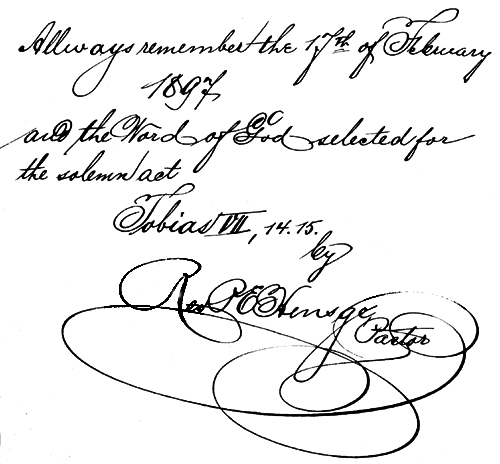 Allways remember the 17th of February
1897
and the Word of God selected for
the solemn act
Tobias VII, 14.15.
by
Rev P E Hensge
Pastor